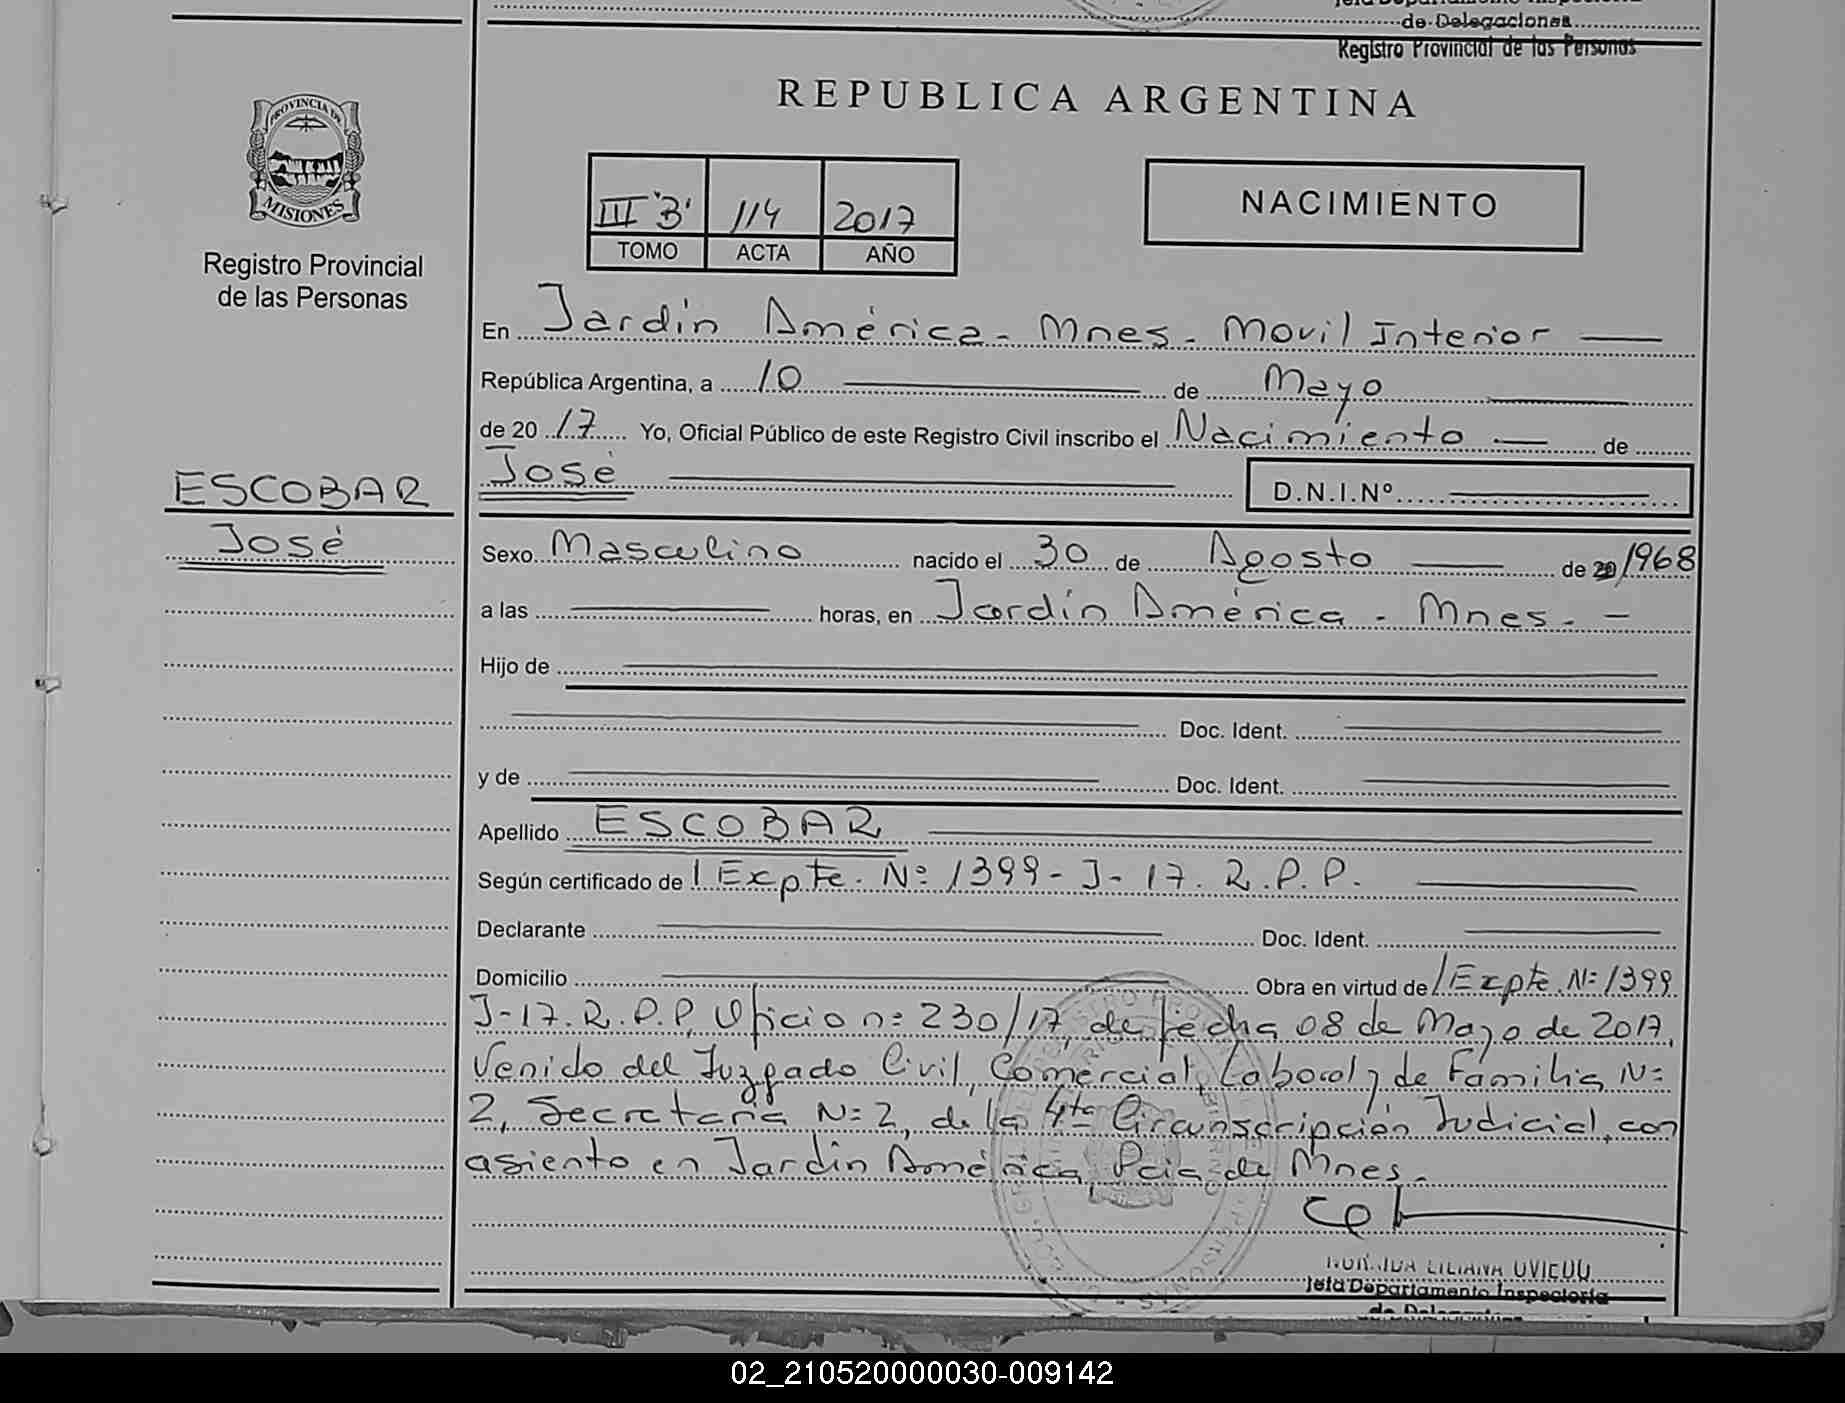 de Delegaciones
Registro Provincial de las Personas
PROVINCIA DE
MISIONES
Registro Provincial
de las Personas
REPUBLICA ARGENTINA
III "B" 114 2017
TOMO ACTA AÑO
NACIMIENTO
En Jardín América - Mnes - Movil Interior
República Argentina, a 10 de Mayo
de 20 17 Yo, Oficial Público de este Registro Civil inscribo el Nacimiento de
ESCOBAR
José
José D.N.I.Nº
Sexo Masculino nacido el 30 de Agosto de 20/1968
a las horas, en Jardín América - Mnes. -
Hijo de
Doc. Ident.
y de Doc. Ident.
Apellido ESCOBAR
Según certificado de / Expte. Nº 1399 - J - 17. R. P. P.
Declarante Doc. Ident.
Domicilio Obra en virtud de / Expte. Nº 1399
J-17. R. P. P, Oficio nº 230/17, de fecha 08 de Mayo de 2017,
Venido del Juzgado Civil, Comercial, Laboral y de Familia Nº
2, Secretaría Nº 2, de la 4ta Circunscripción Judicial, con
asiento en Jardín América, Pcia de Mnes.
LILIANA OVIEDO
Jefa Departamento Inspectoría
02_210520000030-009142